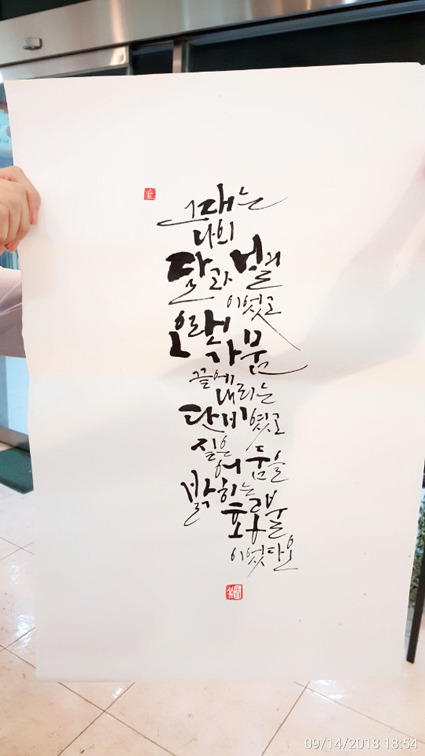 그대는
나의
달과 별
이었고
오랜 가뭄
끝에 내리는
단비였고
짙은 어둠을
밝히는
횃불
이었다오
09/14/2018 18:54